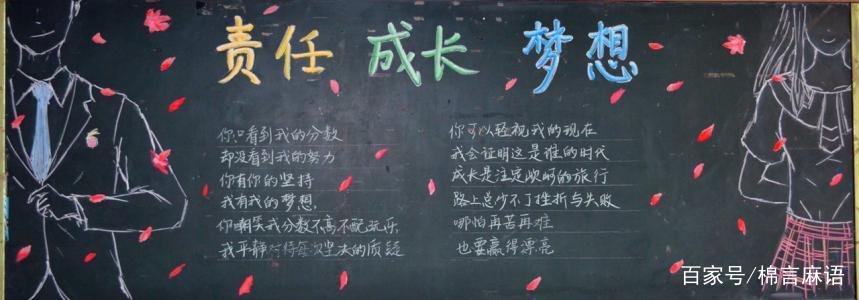 责任 成长 梦想
你只看到我的分数
却没看到我的努力
你有你的坚持
我有我的梦想
你嘲笑我分数不高不配玩乐
我平静对待每次坚决的质疑
你可以轻视我的现在
我会证明这是谁的时代
成长是注定坎坷的旅行
路上总少不了挫折与失败
哪怕再苦再难
也要赢得漂亮
百家号/棉言麻语